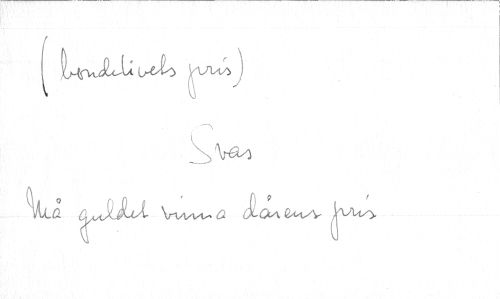 (bondelivets pris)
Svas
Må guldet vinna dårens pris